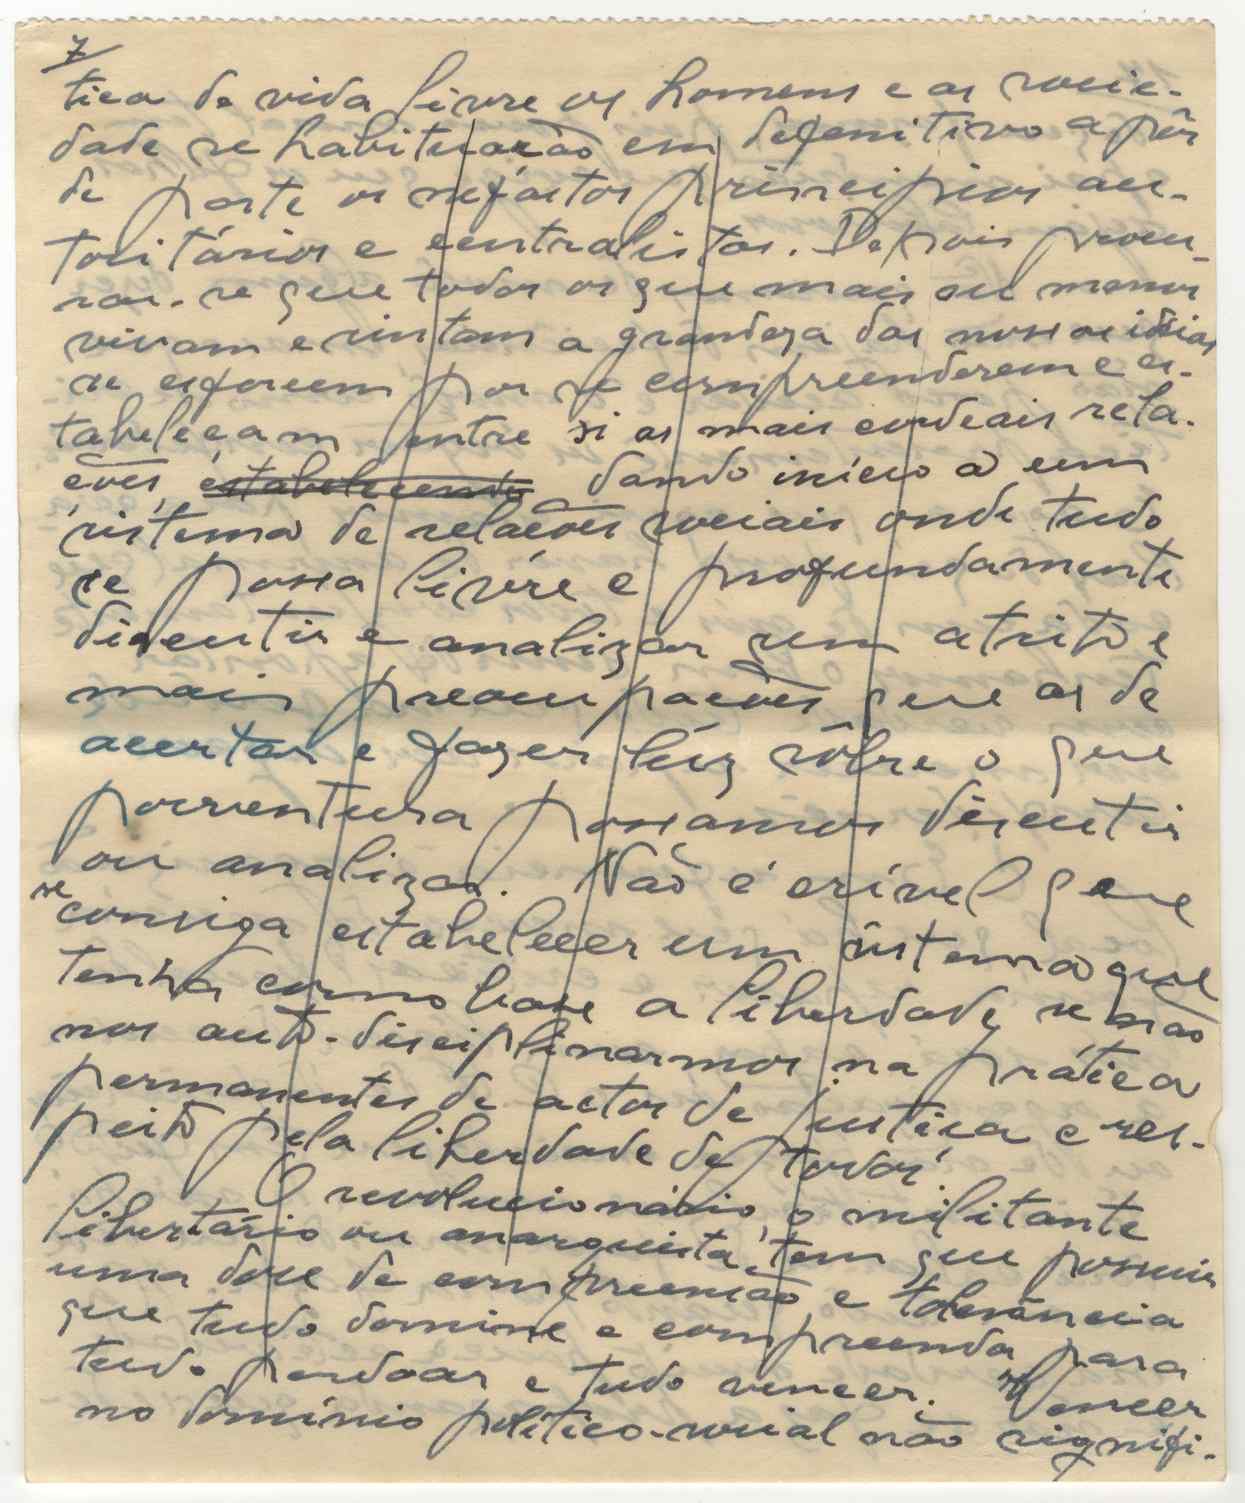 7
tica de vida livre os homens e as socie-
dade se habituarão em defenitivo a pôr
de parte os nefastos principios au-
toritários e centralistas. Depois procu-
rar-se que todos os que mais ou menos
vivam e sintam a grandeza das nossas idéias
se esforcem por se compreenderem e es-
tabeleçam entre si as mais cordeais rela-
ções, estabelecendo dando início a um
sistema de relações sociais onde tudo
se possa livre e profundamente
discutir e analizar sem atrito e
mais preocupações que as de
acertar e fazer lúz sôbre o que
porventura possamos discutir
ou analizar. Não é crível que
se consiga estabelecer um sistema que
tenha como base a liberdade, se não
nos auto-disciplinarmos na prática
permanentes de actos de justica e res-
peito pela liberdade de todos.
O revolucionário, o militante
libertário ou anarquista, tem que possuir
uma dose de compreensão e tolerância
que tudo domine e compreenda para
tudo perdoar e tudo vencer. Vencer
no domínio politico-social não signifi-